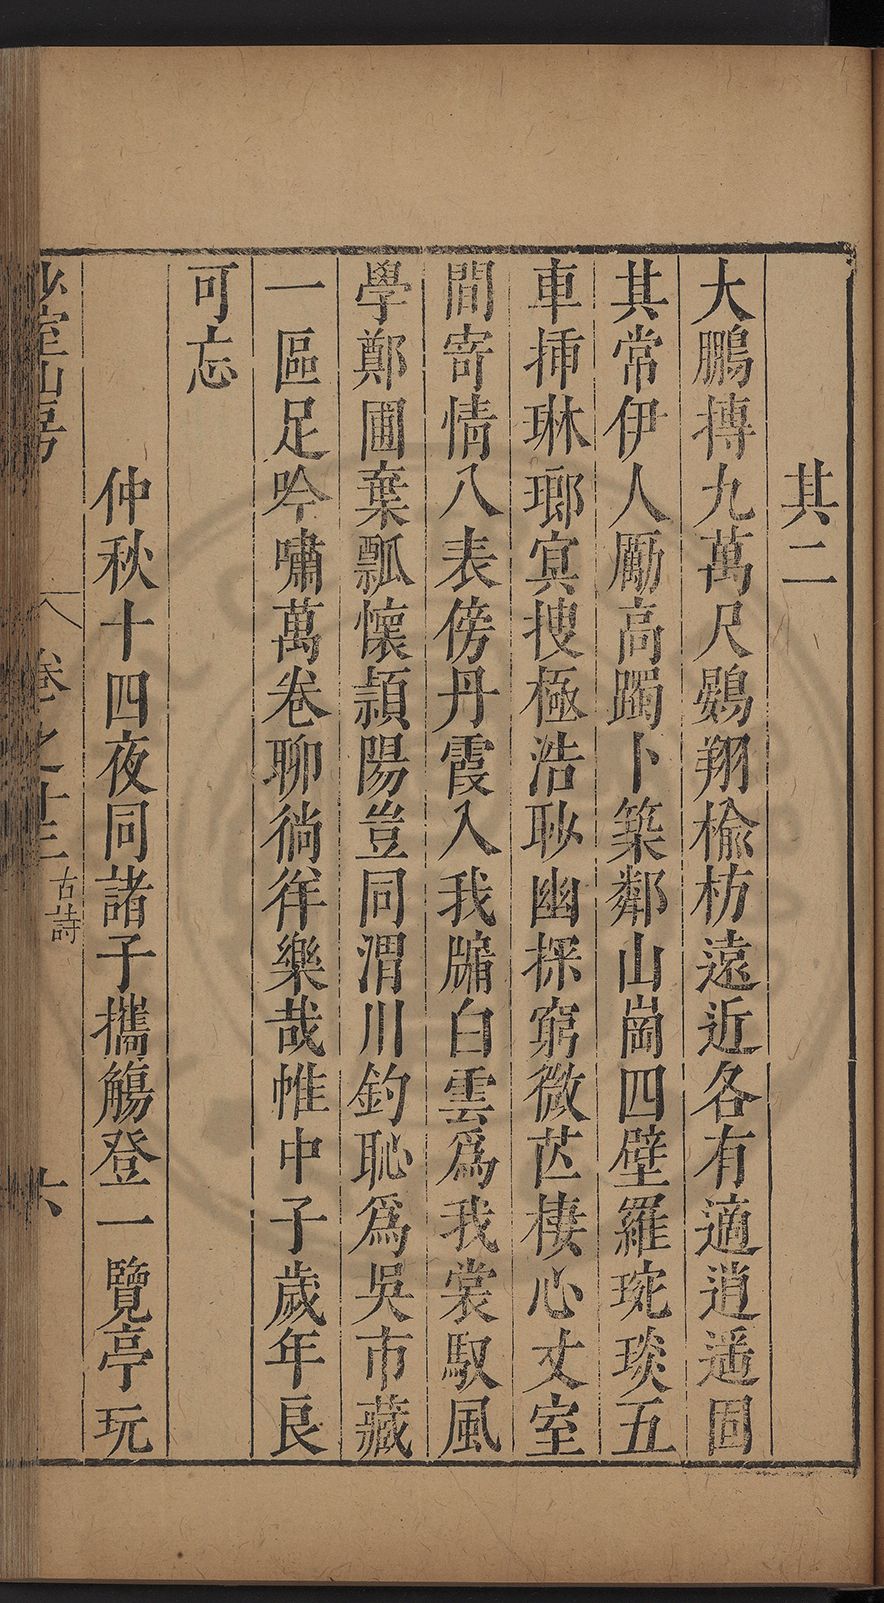 其二
大鵬摶九萬尺鷃翔榆枋遠近各有適逍遥固
其常伊人勵高躅卜築鄰山崗四壁羅琬琰五
車揷琳瑯㝠搜極浩眇幽探窮微茫棲心丈室
間寄情八表傍丹霞入我牖白雲爲我裳馭風
學鄭圃棄瓢懷潁陽豈同渭川釣恥爲吳市藏
一區足吟嘯萬卷聊徜徉樂哉帷中子歲年良
可忘
仲秋十四夜同諸子攜觴登一覽亭玩
少室山房 卷之十三 古詩 六